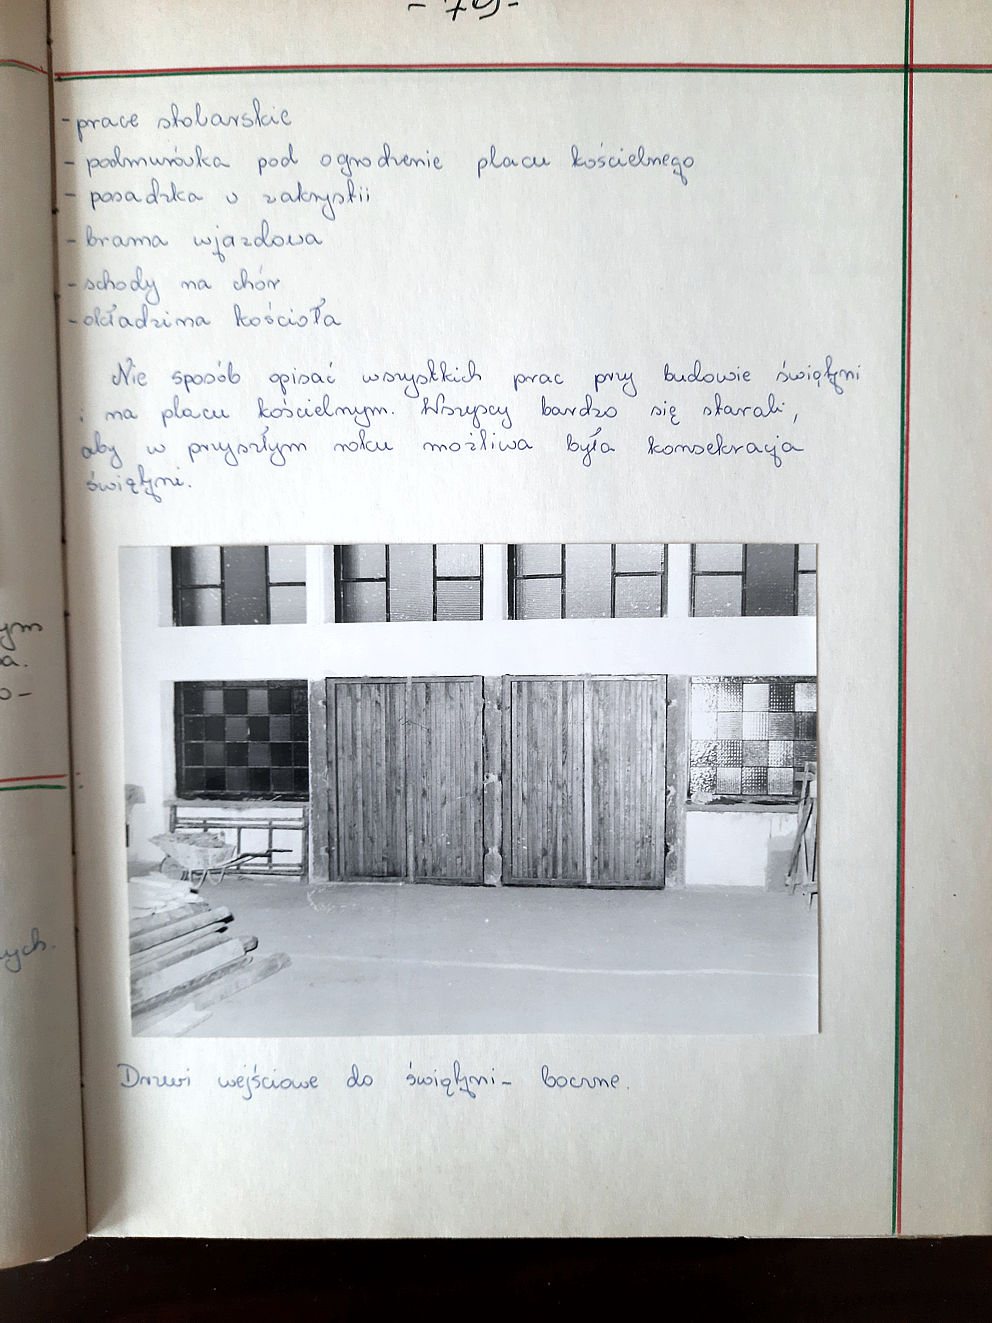 - 79 -
- prace stolarskie
- podmurówka pod ogrodzenie placu kościelnego
- posadzka w zakrystii
- brama wjazdowa
- schody na chór
- okładzina kościoła
Nie sposób opisać wszystkich prac przy budowie świątyni
i na placu kościelnym. Wszyscy bardzo się starali,
aby w przyszłym roku możliwa była konsekracja
świątyni.
Drzwi wejściowe do świątyni - boczne.